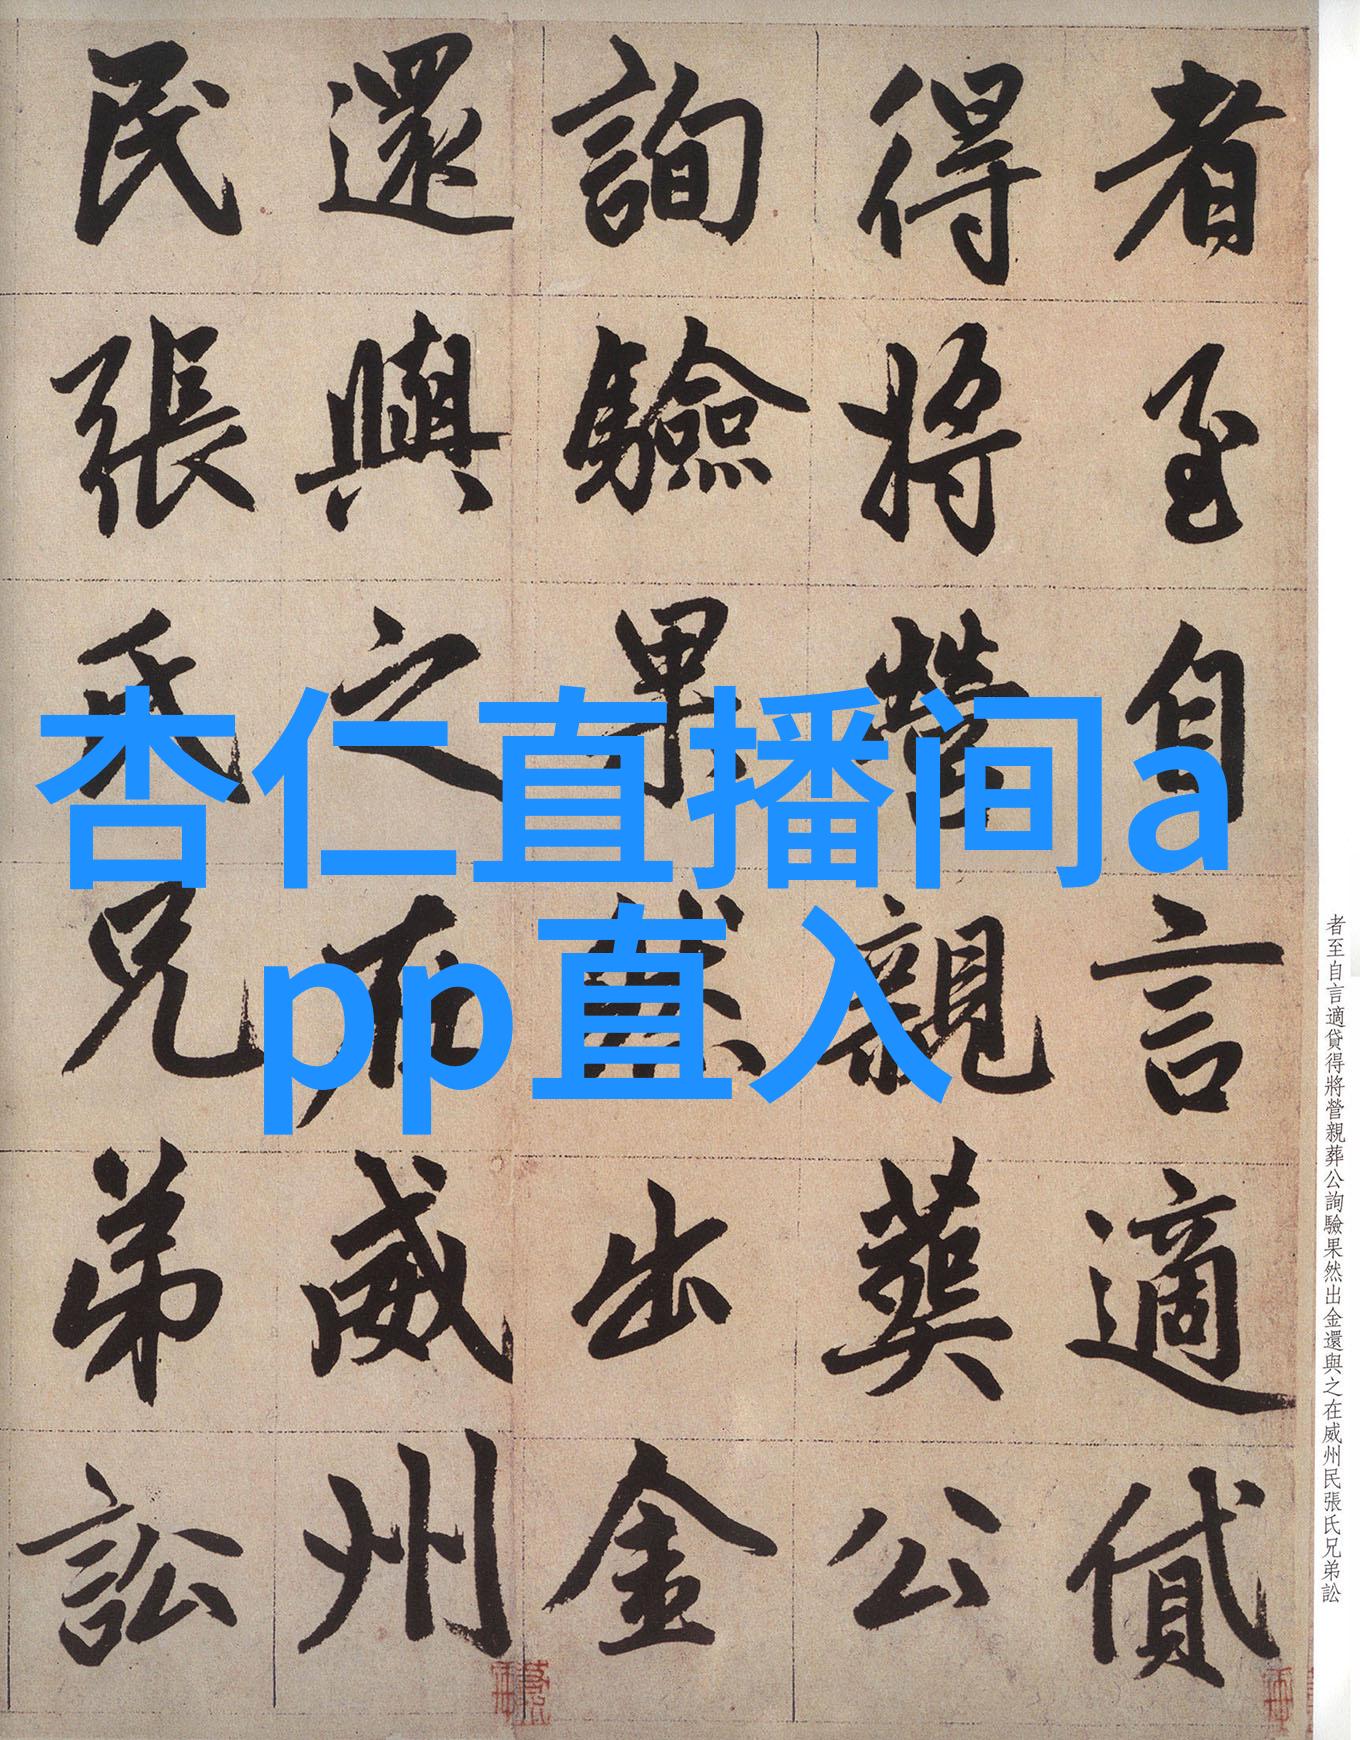 者至自言適貸
得將營親葬公
詢驗果然出金
還與之在威州
民張氏兄弟訟
杏仁直播间a
pp直入
者至自言適貸得將營親葬公詢驗果然出金還與之在威州民張氏兄弟訟